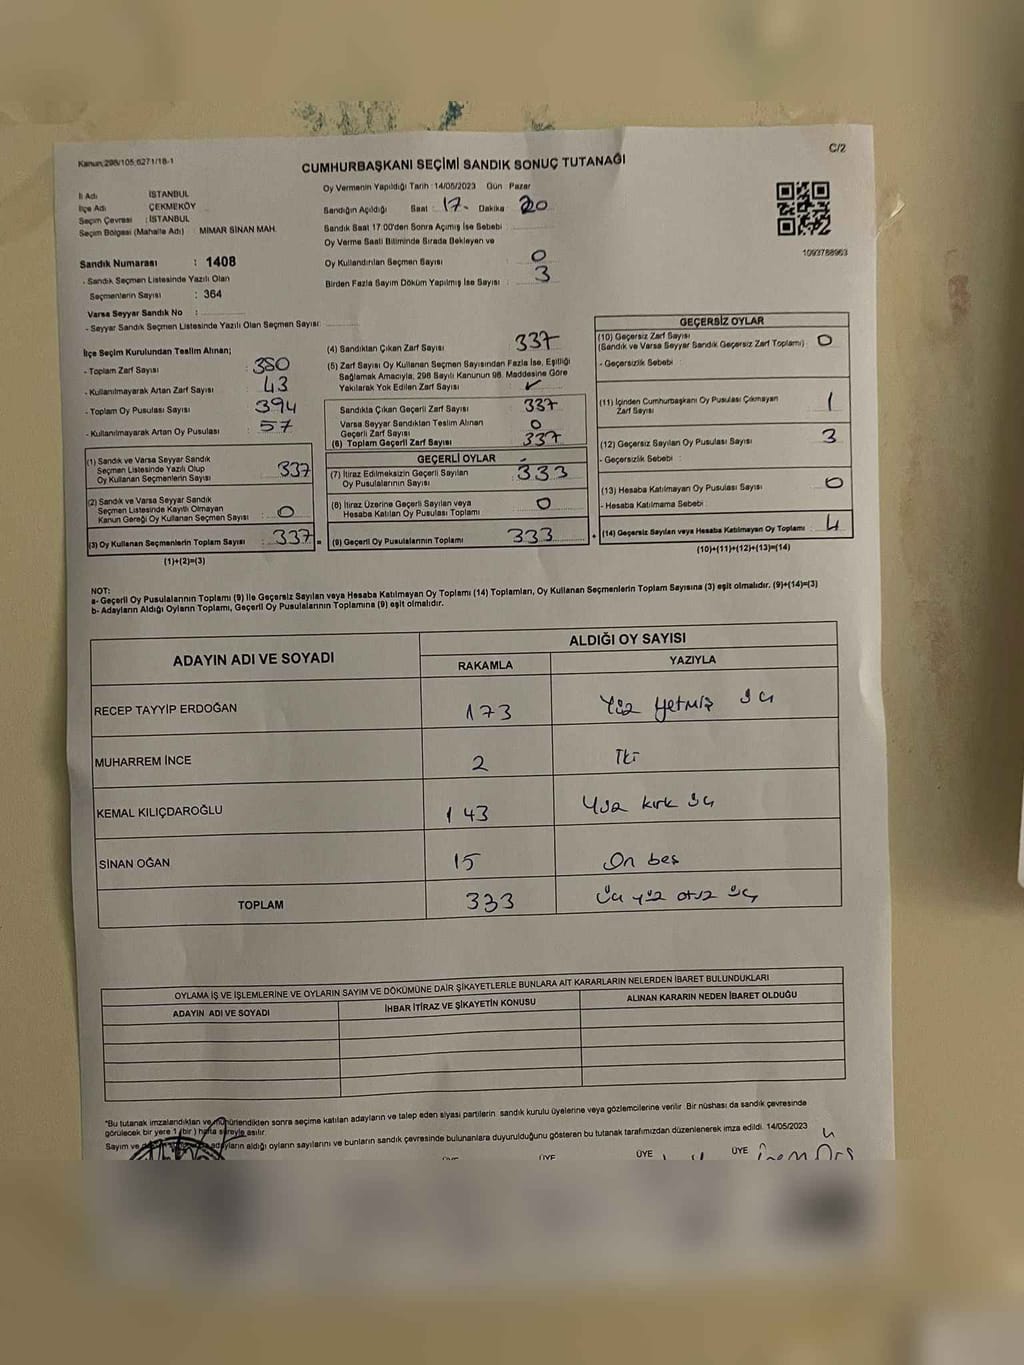 Kanun:298/105;6271/18-1
C/2
CUMHURBAŞKANI SEÇİMİ SANDIK SONUÇ TUTANAĞI
İl Adı : İSTANBUL
İlçe Adı ÇEKMEKÖY
Seçim Çevresi : İSTANBUL
Seçim Bölgesi (Mahalle Adı) MIMAR SİNAN MAH.
Sandık Numarası : 1408
- Sandık Seçmen Listesinde Yazılı Olan
Seçmenlerin Sayısı : 364
Varsa Seyyar Sandık No :
- Seyyar Sandık Seçmen Listesinde Yazılı Olan Seçmen Sayısı:
Oy Vermenin Yapıldığı Tarih : 14/05/2023 Gün Pazar
Sandığın Açıldığı Saat : 17- Dakika 20
Sandık Saat 17.00'den Sonra Açımış İse Sebebi :
Oy Verme Saati Bitiminde Sırada Bekleyen ve
Oy Kullandırılan Seçmen Sayısı : 0
Birden Fazla Sayım Döküm Yapılmış İse Sayısı : 3
1093788963
İlçe Seçim Kurulundan Teslim Alınan;
- Toplam Zarf Sayısı : 380
- Kullanılmayarak Artan Zarf Sayısı : 43
- Toplam Oy Pusulası Sayısı : 394
- Kullanılmayarak Artan Oy Pusulası : 57
(1) Sandık ve Varsa Seyyar Sandık
Seçmen Listesinde Yazılı Olup
Oy Kullanan Seçmenlerin Sayısı : 337
(2) Sandık ve Varsa Seyyar Sandık
Seçmen Listesinde Kayıtlı Olmayan
Kanun Gereği Oy Kullanan Seçmen Sayısı : 0
(3) Oy Kullanan Seçmenlerin Toplam Sayısı : 337
(1)+(2)=(3)
(4) Sandıktan Çıkan Zarf Sayısı : 337
(5) Zarf Sayısı Oy Kullanan Seçmen Sayısından Fazla İse, Eşitliği
Sağlamak Amacıyla, 298 Sayılı Kanunun 98. Maddesine Göre
Yakılarak Yok Edilen Zarf Sayısı : ✓
Sandıkta Çıkan Geçerli Zarf Sayısı : 337
Varsa Seyyar Sandıktan Teslim Alınan
Geçerli Zarf Sayısı : 0
(6) Toplam Geçerli Zarf Sayısı : 337
GEÇERLİ OYLAR
(7) İtiraz Edilmeksizin Geçerli Sayılan
Oy Pusulalarının Sayısı : 333
(8) İtiraz Üzerine Geçerli Sayılan veya
Hesaba Katılan Oy Pusulası Toplamı : 0
(9) Geçerli Oy Pusulalarının Toplamı : 333
GEÇERSİZ OYLAR
(10) Geçersiz Zarf Sayısı
(Sandık ve Varsa Seyyar Sandık Geçersiz Zarf Toplamı) : 0
- Geçersizlik Sebebi :
(11) İçinden Cumhurbaşkanı Oy Pusulası Çıkmayan
Zarf Sayısı : 1
(12) Geçersiz Sayılan Oy Pusulası Sayısı : 3
- Geçersizlik Sebebi :
(13) Hesaba Katılmayan Oy Pusulası Sayısı : 0
- Hesaba Katılmama Sebebi :
(14) Geçersiz Sayılan veya Hesaba Katılmayan Oy Toplamı : 4
(10)+(11)+(12)+(13)=(14)
NOT:
a- Geçerli Oy Pusulalarının Toplamı (9) ile Geçersiz Sayılan veya Hesaba Katılmayan Oy Toplamı (14) Toplamları, Oy Kullanan Seçmenlerin Toplam Sayısına (3) eşit olmalıdır. (9)+(14)=(3)
b- Adayların Aldığı Oyların Toplamı, Geçerli Oy Pusulalarının Toplamına (9) eşit olmalıdır.
ADAYIN ADI VE SOYADI
ALDIĞI OY SAYISI
RAKAMLA YAZIYLA
RECEP TAYYİP ERDOĞAN 173 Yüz Yetmiş üç
MUHARREM İNCE 2 İki
KEMAL KILIÇDAROĞLU 143 Yüz kırk üç
SİNAN OĞAN 15 On beş
TOPLAM 333 Üç yüz otuz üç
OYLAMA İŞ VE İŞLEMLERİNE VE OYLARIN SAYIM VE DÖKÜMÜNE DAİR ŞİKAYETLERLE BUNLARA AİT KARARLARIN NELERDEN İBARET BULUNDUKLARI
ADAYIN ADI VE SOYADI İHBAR İTİRAZ VE ŞİKAYETİN KONUSU ALINAN KARARIN NEDEN İBARET OLDUĞU
"Bu tutanak imzalandıktan ve mühürlendikten sonra seçime katılan adayların ve talep eden siyasi partilerin sandık kurulu üyelerine veya gözlemcilerine verilir. Bir nüshası da sandık çevresinde
görülecek bir yere 1 (bir) hafta süreyle asılır.
Sayım ve adayların aldığı oyların sayılarını ve bunların sandık çevresinde bulunanlara duyurulduğunu gösteren bu tutanak tarafımızdan düzenlenerek imza edildi. 14/05/2023
ÜYE ÜYE ÜYE ÜYE